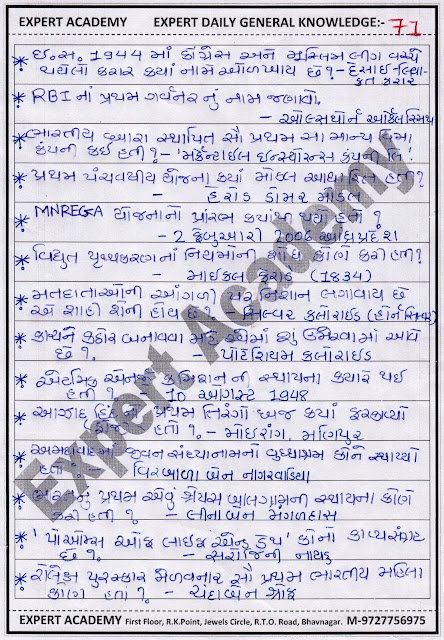 EXPERT ACADEMY EXPERT DAILY GENERAL KNOWLEDGE:- 71
* ઈ.સ. 1944 માં કોંગ્રેસ અને મુસ્લિમ લીગ વચ્ચે
થયેલો કરાર કયાં નામે ઓળખાય છે ? - દેસાઈ-લિયા-
કત કરાર
* RBI નાં પ્રથમ ગર્વનર નું નામ જણાવો.
- ઓસ્બોર્ન આર્કેલ સ્મિથ
* ભારતીય દ્વારા સ્થાપિત સૌ પ્રથમ સામાન્ય વિમા
કંપની કઈ હતી ? - 'મર્કેન્ટાઈલ ઈન્સ્યોરન્સ કંપની લિ.'
* પ્રથમ પંચવર્ષીય યોજના કયાં મોડેલ આધારિત હતી ?
- હેરોડ ડોમર મોડેલ
* MNREGA યોજનાનો પ્રારંભ કયાંથી થયો હતો ?
- 2 ફેબ્રુઆરી 2006 આંધ્રપ્રદેશ
* વિદ્યુત પૃથ્થકરણનાં નિયમોની શોધ કોણે કરી હતી ?
- માઈકલ ફેરાડે (1834)
* મતદાતાઓની આંગળી પર નિશાન લગાવાય છે
એ શાહી શેની હોય છે - સિલ્વર કલોરાઈડ (હોર્ન સિલ્વર)
* કાચને કઠોર બનાવવા માટે તેમાં શું ઉમેરવામાં આવે
છે ?. - પોટેશિયમ કલોરાઈડ
* એટમિક એનર્જી કમિશન ની સ્થાપના કયારે થઈ
હતી ? - 10 ઓગસ્ટ 1948
* આઝાદ હિંદ નો પ્રથમ તિરંગો ધ્વજ કયાં ફરકાવ્યો
હતો ? - મોઈરાંગ, મણિપુર
* અમદાવાદમાં જીવન સંધ્યાનામનો વૃધ્ધાશ્રમ કોને સ્થાપ્યો
હતો ? વિરબાળા બેન નાગરવાડિયા
* ભારતનું પ્રથમ એવું શ્રેયસ બાલગ્રામની સ્થાપના કોણે
કરી હતી ? - લીના બેન મંગળદાસ
* 'પોએમ્સ ઓફ લાઈફ એન્ડ ડેથ' કોનો કાવ્યસંગ્રહ
છે ?. - સરોજિની નાયડુ
* રોલેક્ષ પુરસ્કાર મેળવનાર સૌ પ્રથમ ભારતીય મહિલા
કોણ હતો ? - ચંદાબેન શ્રોફ
Expert Academy
EXPERT ACADEMY First Floor, R.K.Point, Jewels Circle, R.T.O. Road, Bhavnagar. M-9727756975